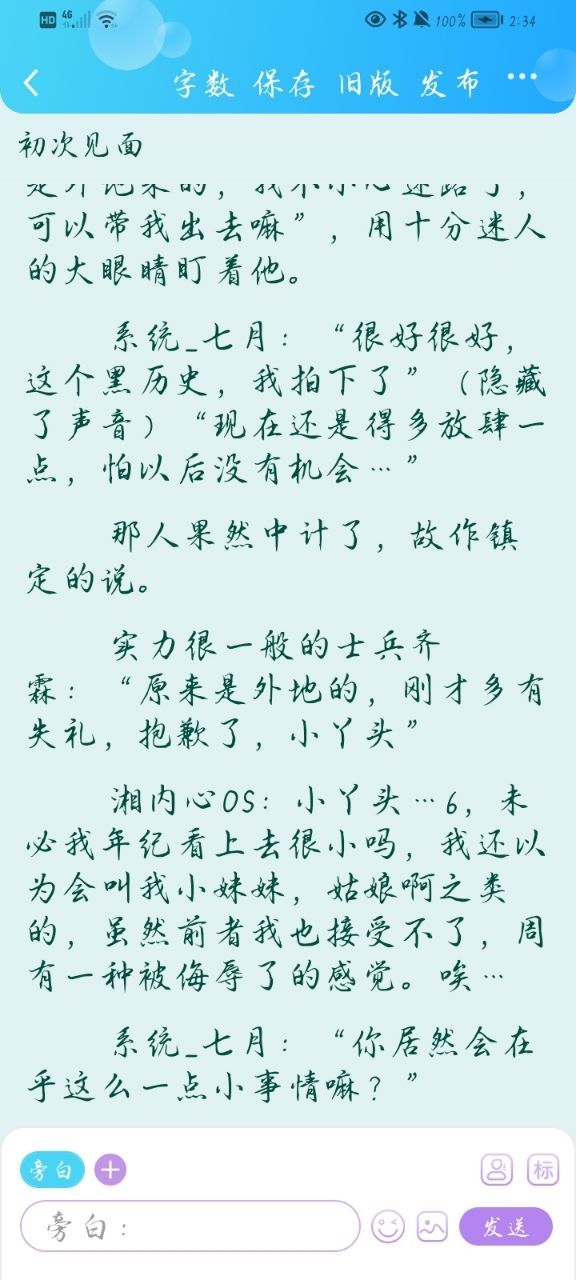 HD 4G 100% 2:34
字数 保存 旧版 发布 ···
初次见面
是外地来的，我不小心迷路了，
可以带我出去嘛”，用十分迷人
的大眼睛盯着他。
系统_七月：“很好很好，
这个黑历史，我拍下了”（隐藏
了声音）“现在还是得多放肆一
点，怕以后没有机会…”
那人果然中计了，故作镇
定的说。
实力很一般的士兵齐
霖：“原来是外地的，刚才多有
失礼，抱歉了，小丫头”
湘内心OS：小丫头…6，未
必我年纪看上去很小吗，我还以
为会叫我小妹妹，姑娘啊之类
的，虽然前者我也接受不了，周
有一种被侮辱了的感觉。唉…
系统_七月：“你居然会在
乎这么一点小事情嘛？”
旁白
标
旁白：
发送